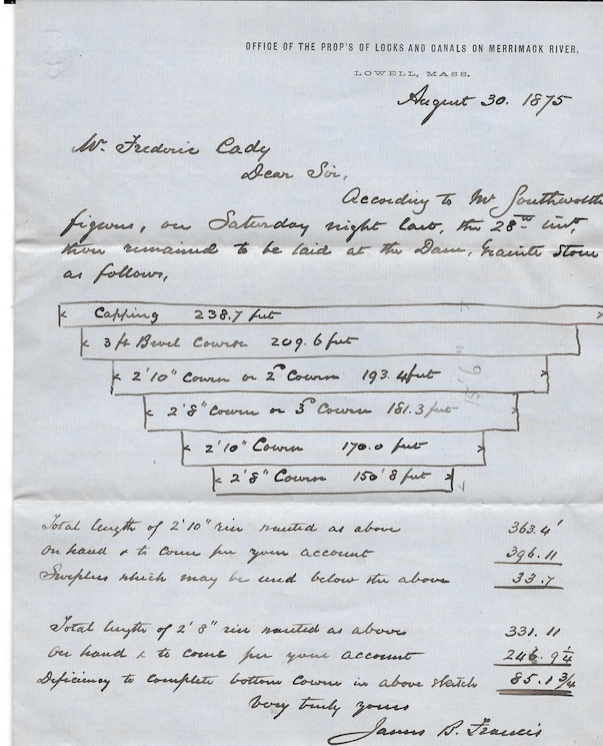 OFFICE OF THE PROP'S OF LOCKS AND CANALS ON MERRIMACK RIVER,
LOWELL, MASS.
August 30. 1875
Mr. Frederic Cady
Dear Sir,
According to Mr Southworth
figures, on Saturday night last, the 28th inst,
there remained to be laid at the Dam, Granite Stone
as follows,
Capping 238.7 feet
3 ft Bevel Course 209.6 feet
2' 10" Course or 2d Course 193.4 feet
2' 8" Course or 3d Course 181.3 feet
15' 6"
2' 10" Course 170.0 feet
2' 8" Course 150' 8 feet
Total length of 2' 10" rise wanted as above 363.4'
On hand & to come per your account 396.11
Surplus which may be used below the above 33.7
Total length of 2' 8" rise wanted as above 331.11
On hand & to come per your account 246.9 1/4
Deficiency to complete bottom course in above sketch 85.1 3/4
Very truly yours
James B. Francis